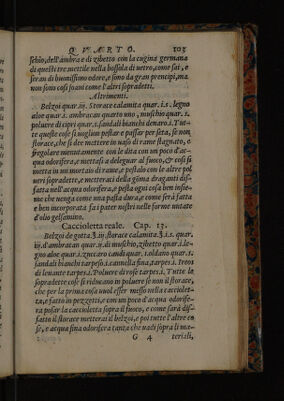 QVARTO. 103
schio, dell'ambra e di zibetto con la cugina germana
di questi tre mettile nella bossola di uetro, come sai, e
seran di buonissimo odore, e sono da gran prencipi, ma
non sono cosi soani come l'altri sopradetti.
Altrimenti.
Belzoi quar.iiij. Storace calamita quar.i.s. legno
aloe quar.i. ambracan quarto uno, muschio quar.s.
poluere di cipri quar.i. sandali bianchi denaro.i. Tut-
te queste cose si uoglion pestar e passar per seta, se non
storace, che si dee mettere in uaso di rame stagnato, e
fregolare menutamente con le dita con un poco d'ac-
qua odorifera, e mettasi a deleguar al fuoco, & cosi si
metta in un mortaio di rame, e pestalo con le altre pol
ueri sopradette, e metteraci della gõma draganti dis-
fatta nell'acqua odorifera, e pesta ogni cosa ben insie-
me che uenga come una pasta dura, e come serà fatta
e ben incorporata fai pater nostri nelle forme untate
d'olio gelsamino.
Caccioletta reale. Cap. 13.
Belzoi de gotta.℥.iij. storace calamita.℥.i.s. quar.
iij. d'ambracan quar.ij. di muschio, zibetto quar.i. le-
gno aloe quar.i. zuccaro candi quar. s. oldano quar.s.
sandali bianchi tarpeso.i. cannella fina, tarpes.i. Ireos
di leuante tarpes.i. Poluere di rose tarpes.i. Tutte le
sopradette cose si riducano in poluere se non il storace,
che per la prima cosa uuol esser messo nella cacciolet-
ta, e fatto in pezzetti, e con un poco d'acqua odorife-
ra posar la caccioletta sopra il fuoco, e come sarà dis-
fatto il storace metterai il belzoi, e poi tutte l'altre co
se, e acqua fina odorifera tanta che uadi sopra li ma-
G 4 teriali,